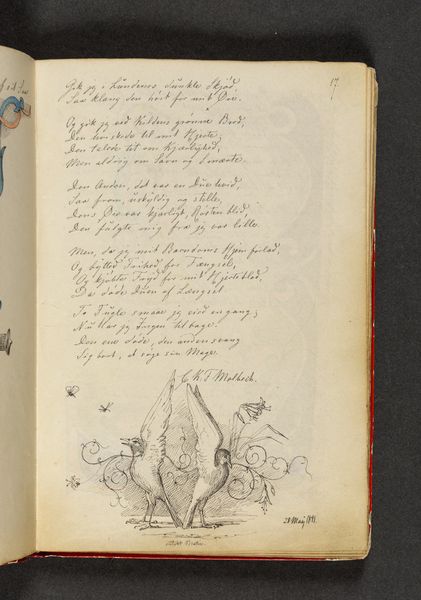 17.
Gik jeg i Lundenes dunkle Skjød,
Saa klang den höit for mit Øre.
Og gik jeg ved Kildens grønne Bred,
Den hviskede til mit Hjerte,
Den talede tit om Kjærlighed,
Men aldrig om Savn og Smærte.
Den Anden, det var en Due hvid,
Saa from, uskyldig og stille,
Dens Øie var kjærligt, Røsten blid,
Den fulgte mig fra jeg var lille.
Men, da jeg mit Barndoms Hjem forlod,
Og bytted Frihed for Fængsel,
Og kjøbte Fryd for mit Hjerteblod,
Da døde Duen af Længsel
To Fugle smaae jeg eied engang;
Nu har jeg Ingen tilbage.
Den ene døde, den anden svang
Sig bort, at søge sin Mage.
C. K. F. Molbech.
28 Maij